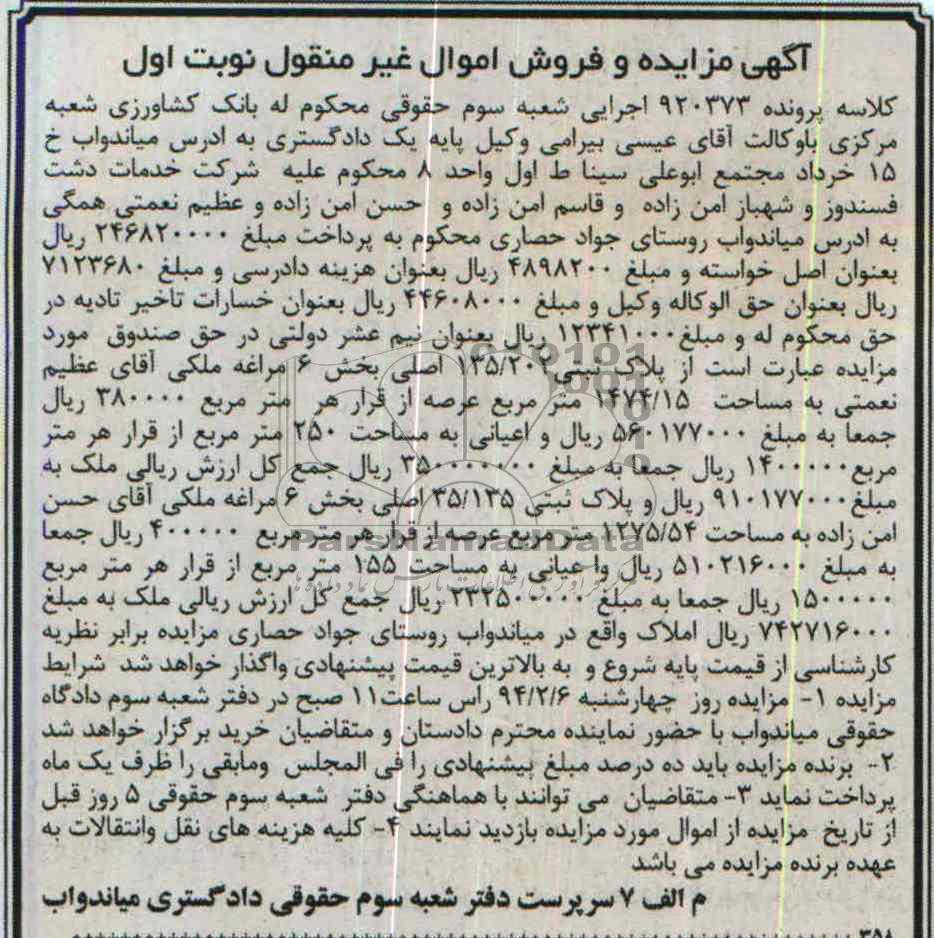 آگهی مزایده و فروش اموال غیر منقول نوبت اول
کلاسه پرونده ۹۲۰۳۷۳ اجرایی شعبه سوم حقوقی محکوم له بانک کشاورزی شعبه
مرکزی باوکالت آقای عیسی بیرامی وکیل پایه یک دادگستری به ادرس میاندواب خ
۱۵ خرداد مجتمع ابوعلی سینا ط اول واحد ۸ محکوم علیه شرکت خدمات دشت
فسندوز و شهباز امن زاده و قاسم امن زاده و حسن امن زاده و عظیم نعمتی همگی
به ادرس میاندواب روستای جواد حصاری محکوم به پرداخت مبلغ ۲۴۶۸۲۰۰۰۰ ریال
بعنوان اصل خواسته و مبلغ ۴۸۹۸۲۰۰ ریال بعنوان هزینه دادرسی و مبلغ ۷۱۲۳۶۸۰
ریال بعنوان حق الوکاله وکیل و مبلغ ۴۴۶۰۸۰۰۰ ریال بعنوان خسارات تاخیر تادیه در
حق محکوم له و مبلغ ۱۲۳۴۱۰۰۰ ریال بعنوان نیم عشر دولتی در حق صندوق مورد
مزایده عبارت است از پلاک ثبتی ۱۳۵/۲۰۲ اصلی بخش ۶ مراغه ملکی آقای عظیم
نعمتی به مساحت ۱۴۷۴/۱۵ متر مربع عرصه از قرار هر متر مربع ۳۸۰۰۰۰ ریال
جمعا به مبلغ ۵۶۰۱۷۷۰۰۰ ریال و اعیانی به مساحت ۲۵۰ متر مربع از قرار هر متر
مربع ۱۴۰۰۰۰۰ ریال جمعا به مبلغ ۳۵۰۰۰۰۰۰۰ ریال جمع کل ارزش ریالی ملک به
مبلغ ۹۱۰۱۷۷۰۰۰ ریال و پلاک ثبتی ۳۵/۱۳۵ اصلی بخش ۶ مراغه ملکی آقای حسن
امن زاده به مساحت ۱۲۷۵/۵۴ متر مربع عرصه از قرار هر متر مربع ۴۰۰۰۰۰ ریال جمعا
به مبلغ ۵۱۰۲۱۶۰۰۰ ریال واعیانی به مساحت ۱۵۵ متر مربع از قرار هر متر مربع
۱۵۰۰۰۰۰ ریال جمعا به مبلغ ۲۳۲۵۰۰۰۰۰ ریال جمع کل ارزش ریالی ملک به مبلغ
۷۴۲۷۱۶۰۰۰ ریال املاک واقع در میاندواب روستای جواد حصاری مزایده برابر نظریه
کارشناسی از قیمت پایه شروع و به بالاترین قیمت پیشنهادی واگذار خواهد شد شرایط
مزایده ۱- مزایده روز چهارشنبه ۹۴/۲/۶ راس ساعت ۱۱ صبح در دفتر شعبه سوم دادگاه
حقوقی میاندواب با حضور نماینده محترم دادستان و متقاضیان خرید برگزار خواهد شد
۲- برنده مزایده باید ده درصد مبلغ پیشنهادی را فی المجلس ومابقی را ظرف یک ماه
پرداخت نماید ۳- متقاضیان می توانند با هماهنگی دفتر شعبه سوم حقوقی ۵ روز قبل
از تاریخ مزایده از اموال مورد مزایده بازدید نمایند ۴- کلیه هزینه های نقل وانتقالات به
عهده برنده مزایده می باشد
م الف ۷ سرپرست دفتر شعبه سوم حقوقی دادگستری میاندواب
ParsNamadData